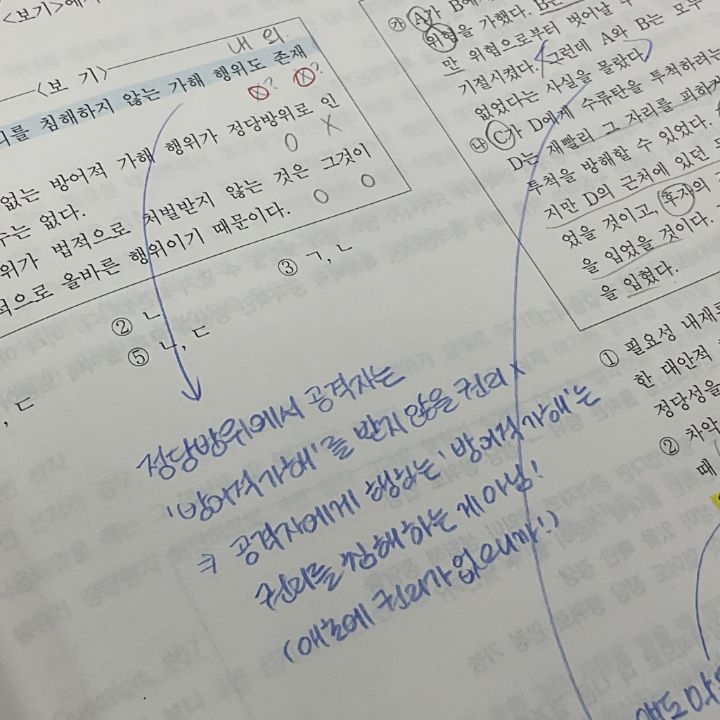 <보기>에
내 외
<보 기>
리를 침해하지 않는 가해 행위도 존재
없는 방어적 가해 행위가 정당방위로 인
수는 없다.
위가 법적으로 처벌받지 않는 것은 그것이
적으로 올바른 행위이기 때문이다.
③ ㄱ, ㄴ
② ㄴ
⑤ ㄴ, ㄷ
, ㄷ
정당방위에서 공격자는
'방어적가해'를 받지않을 권리 x
⇒ 공격자에게 행하는 '방어적가해'는
권리를 침해하는 게 아님!
(애초에 권리가 없으니까!)
㉮ A가 B에
위협을 가했다. B는
만 위협으로부터 벗어날 수
기절시켰다. 그런데 A와 B는 모두
없었다는 사실을 몰랐다.
㉯ C가 D에게 수류탄을 투척하려는
D는 재빨리 그 자리를 피하거
투척을 방해할 수 있었다.
지만 D의 근처에 있던
었을 것이고, 후자의
을 입었을 것이다.
을 입혔다.
① 필요성 내재
한 대안적
정당성을
② 차악
때